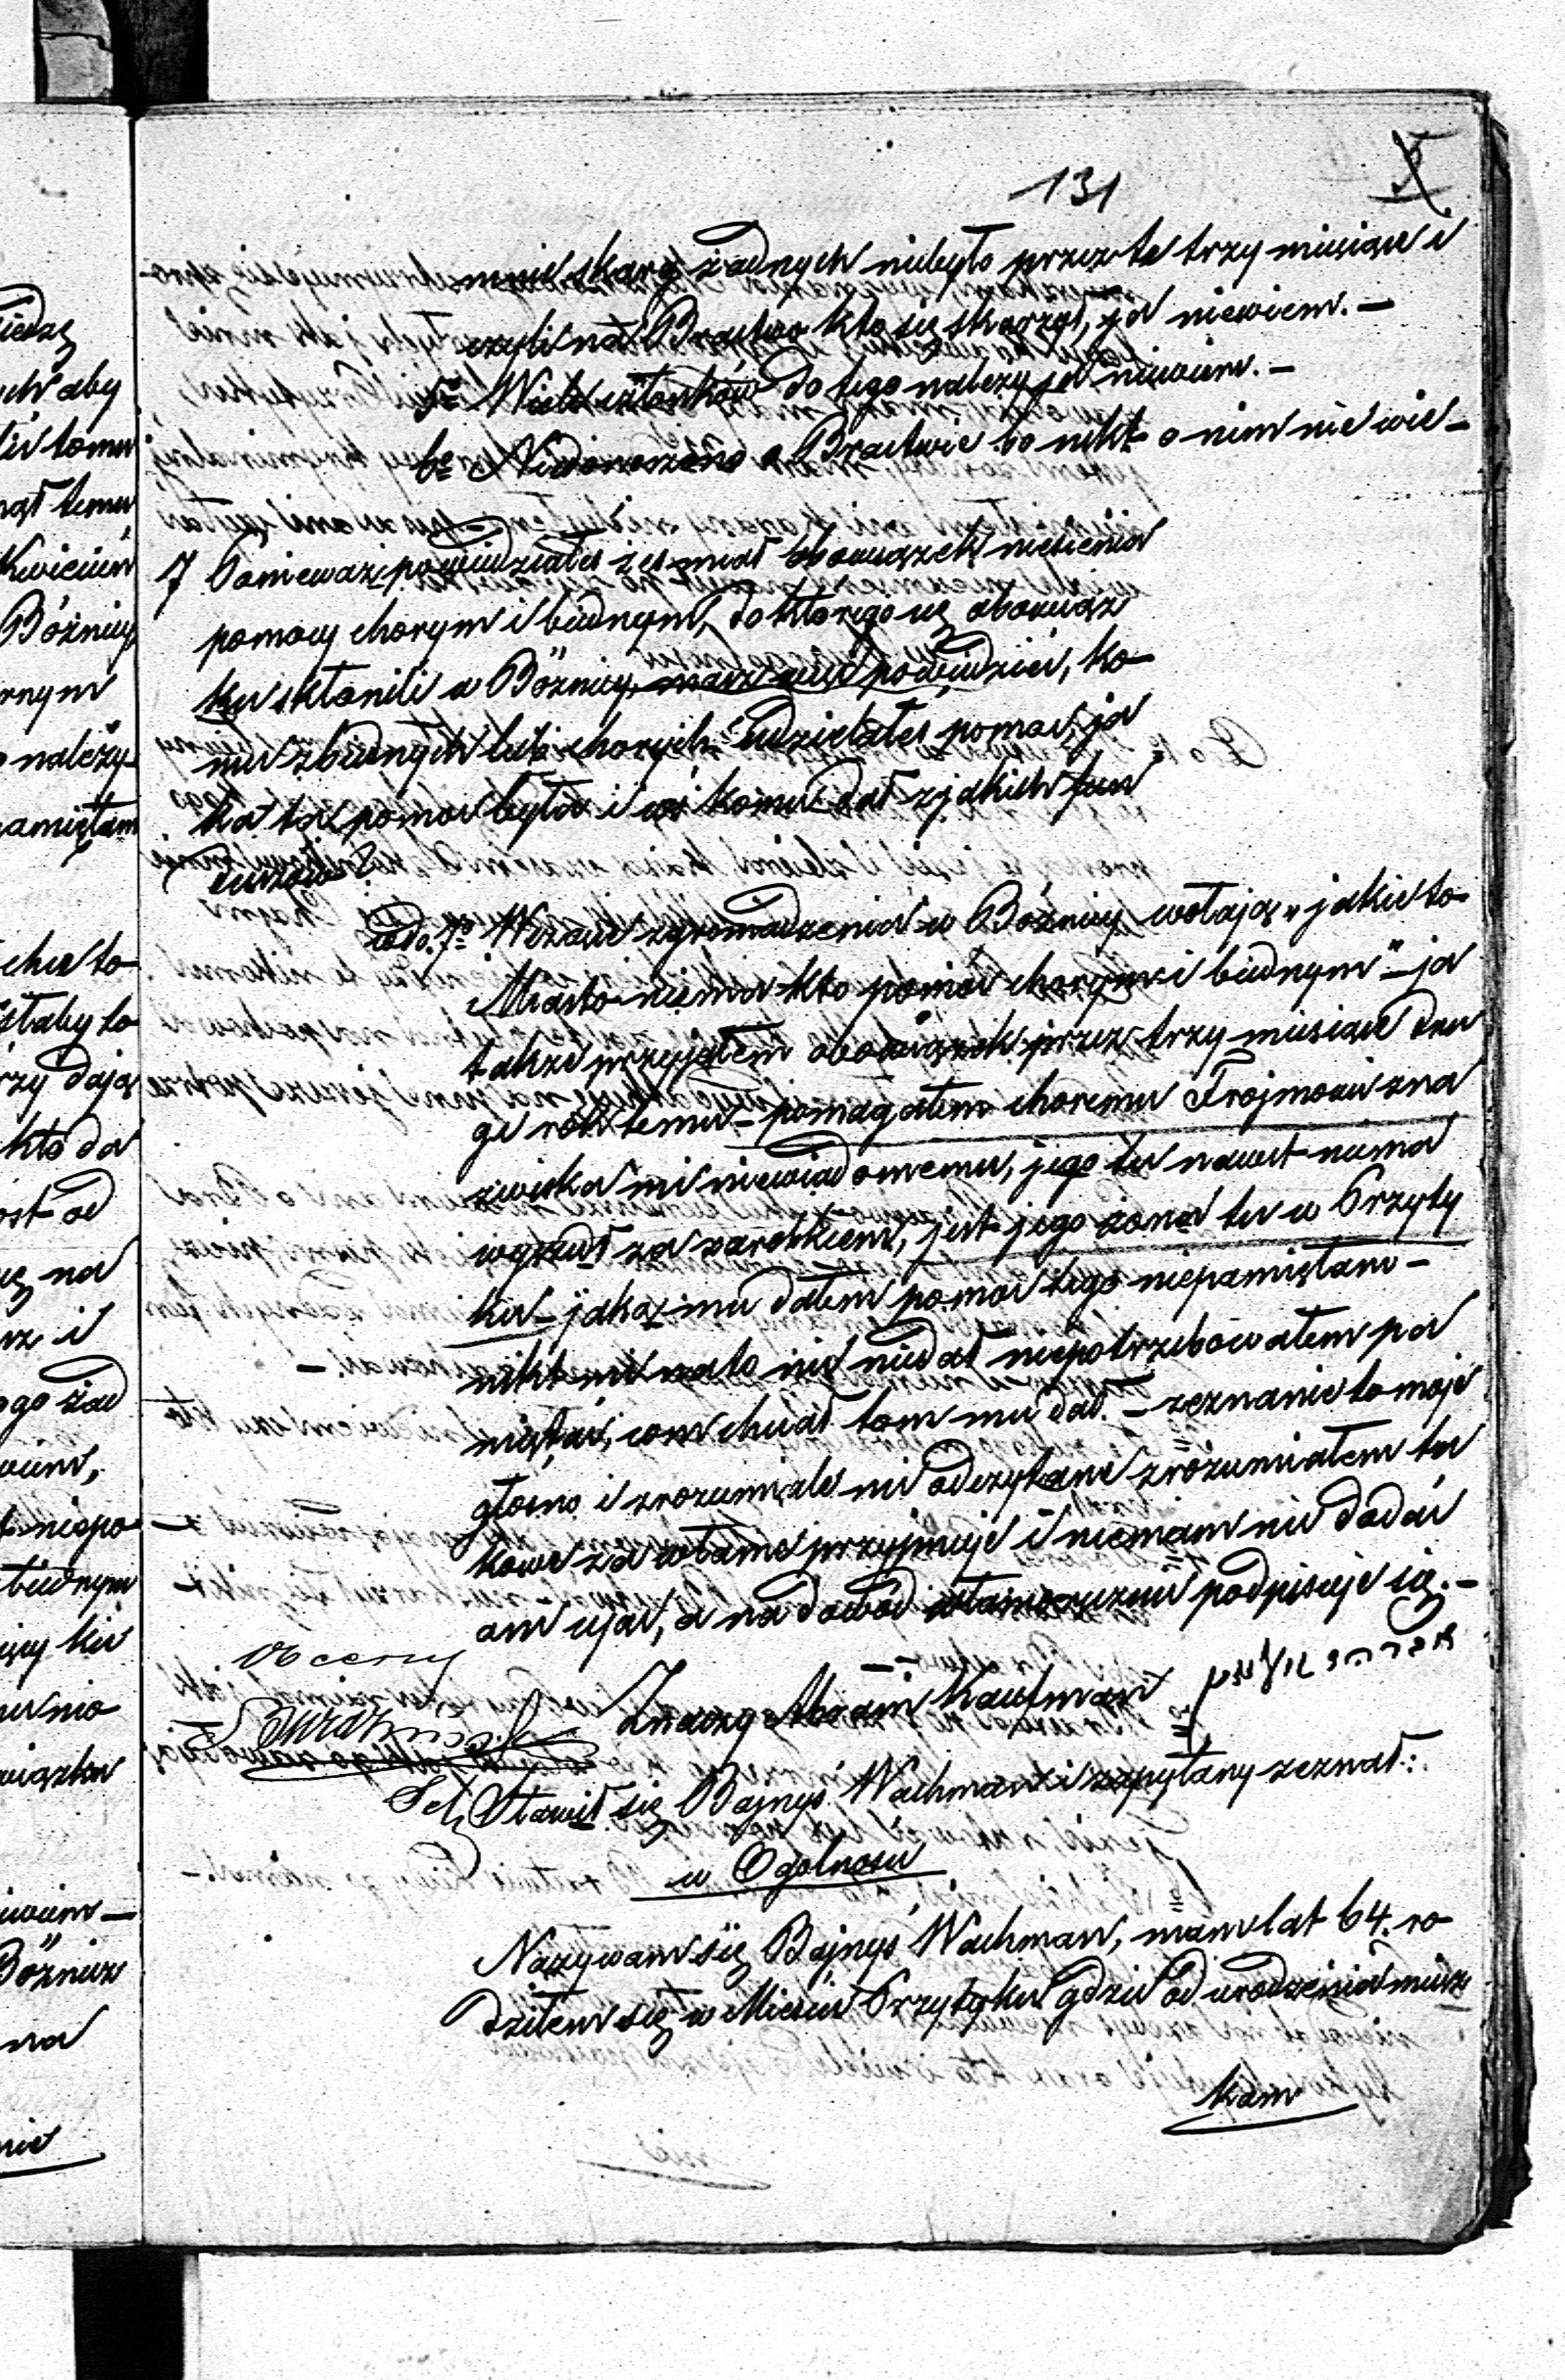 131
mnie skarg żadnych niebyło przez te trzy miesiące i
czyli na Bractwo kto się skarzył, ja niewiem. —
5o Wiele członków do tego należy ja niewiem. —
6o Niedonoszono o Bractwie bo nikt o nim nie wie —
7 Ponieważ powiedziałeś żeś miał obowiązek niesienia
pomocy chorym i biednym, do którego cię obowiąz
ku skłonili w Bóżnicy, masz więc powiedzieć, ko
mu z biednych lub chorych udzielałeś pomoc, ja
ka ta pomoc była i coś komu dał z jakich fun
duszów?
ado. 7o Wezwał zgromadzenia w Bóżnicy wołając „jakie to
Miasto niema kto pomóc chorym i biednym" — ja
także przyjąłem obowiązek przez trzy miesiące dru
gi rok temu — pomagałem choremu Frojmowi zna
zwiska mi niewiadomemu, jego tu nawet niema
wyszedł za zarobkiem, jest jego żona tu w Przyty
ku — jaką mu dałem pomoc tego niepamiętam —
nikt mi na to nic niedał niepotrzebowałem pa
miętać, com chciał tom mu dał. — zeznanie to moje
głośno i zrozumiale mi odczytane zrozumiałem ta
kowe za własne przyjmuje i niemam nic dodać
ani ująć, a na dowód własnoręcznie podpisuje się. —
Obecny
Znaczy Abram Kaufman
Stawił się Bajnyś Wachman i zapytany zeznał:
w Ogolnosci
Nazywam się Bajnyś Wachman, mam lat 64. ro
dziłem się w Mieście Przytyku gdzie od urodzenia miesz
kam